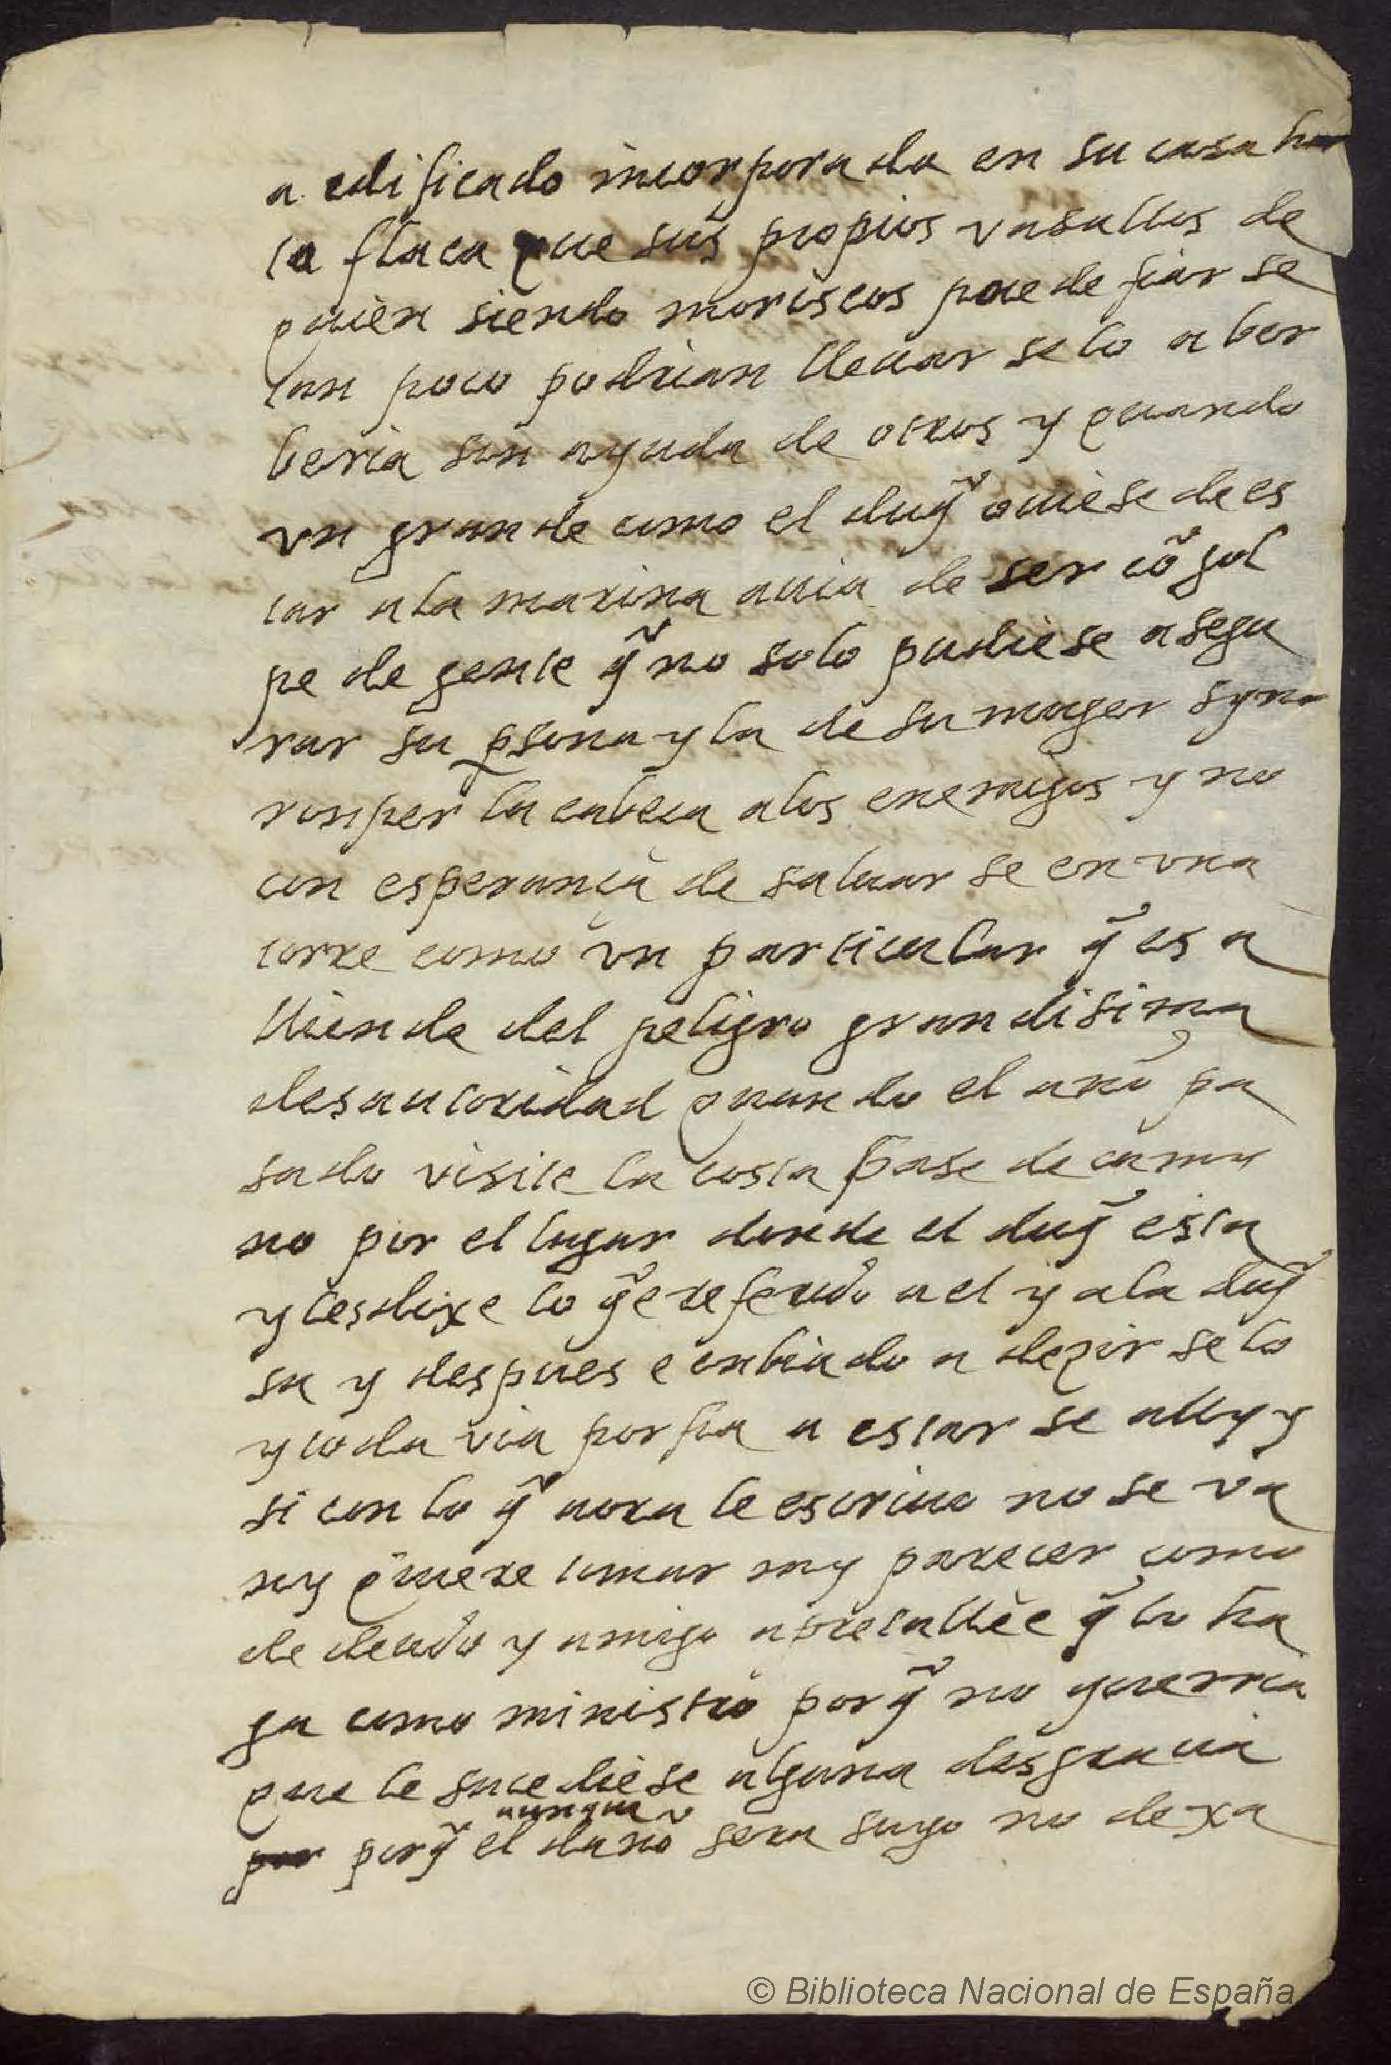 a edificado incorporada en su casa har
ta flaca que sus propios vasallos de
quien siendo moriscos puede fiar se
tan poco podrian lleuar selo a ber
beria sin ayuda de otros y quando
vn grande como el duq̃ ouiese de es
tar a la marina auia de ser cõ gol
pe de gente q̃ no solo pudiese asegu
rar su psona y la de su muger syno
ronper la cabeca a los enemigos y no
con esperança de saluar se en vna
torre como vn particular q̃ es a
lliende del peligro grandisima
desautoridad quando el año pa
sado visite la costa pase de cami
no por el lugar donde el duq̃ esta
y les dixe lo q̃ e referido a el y a la duq̃
sa y despues e enbiado a dezir selo
y toda via porfia a estar se ally y
si con lo q̃ aora le escriuo no se va
ny quiere tomar my parecer como
de deudo y amigo apretalle e q̃ lo ha
ga como ministro porq̃ no querria
que le sucediese alguna desgracia
aunque
por porq̃ el daño sera suyo no dexa
© Biblioteca Nacional de España